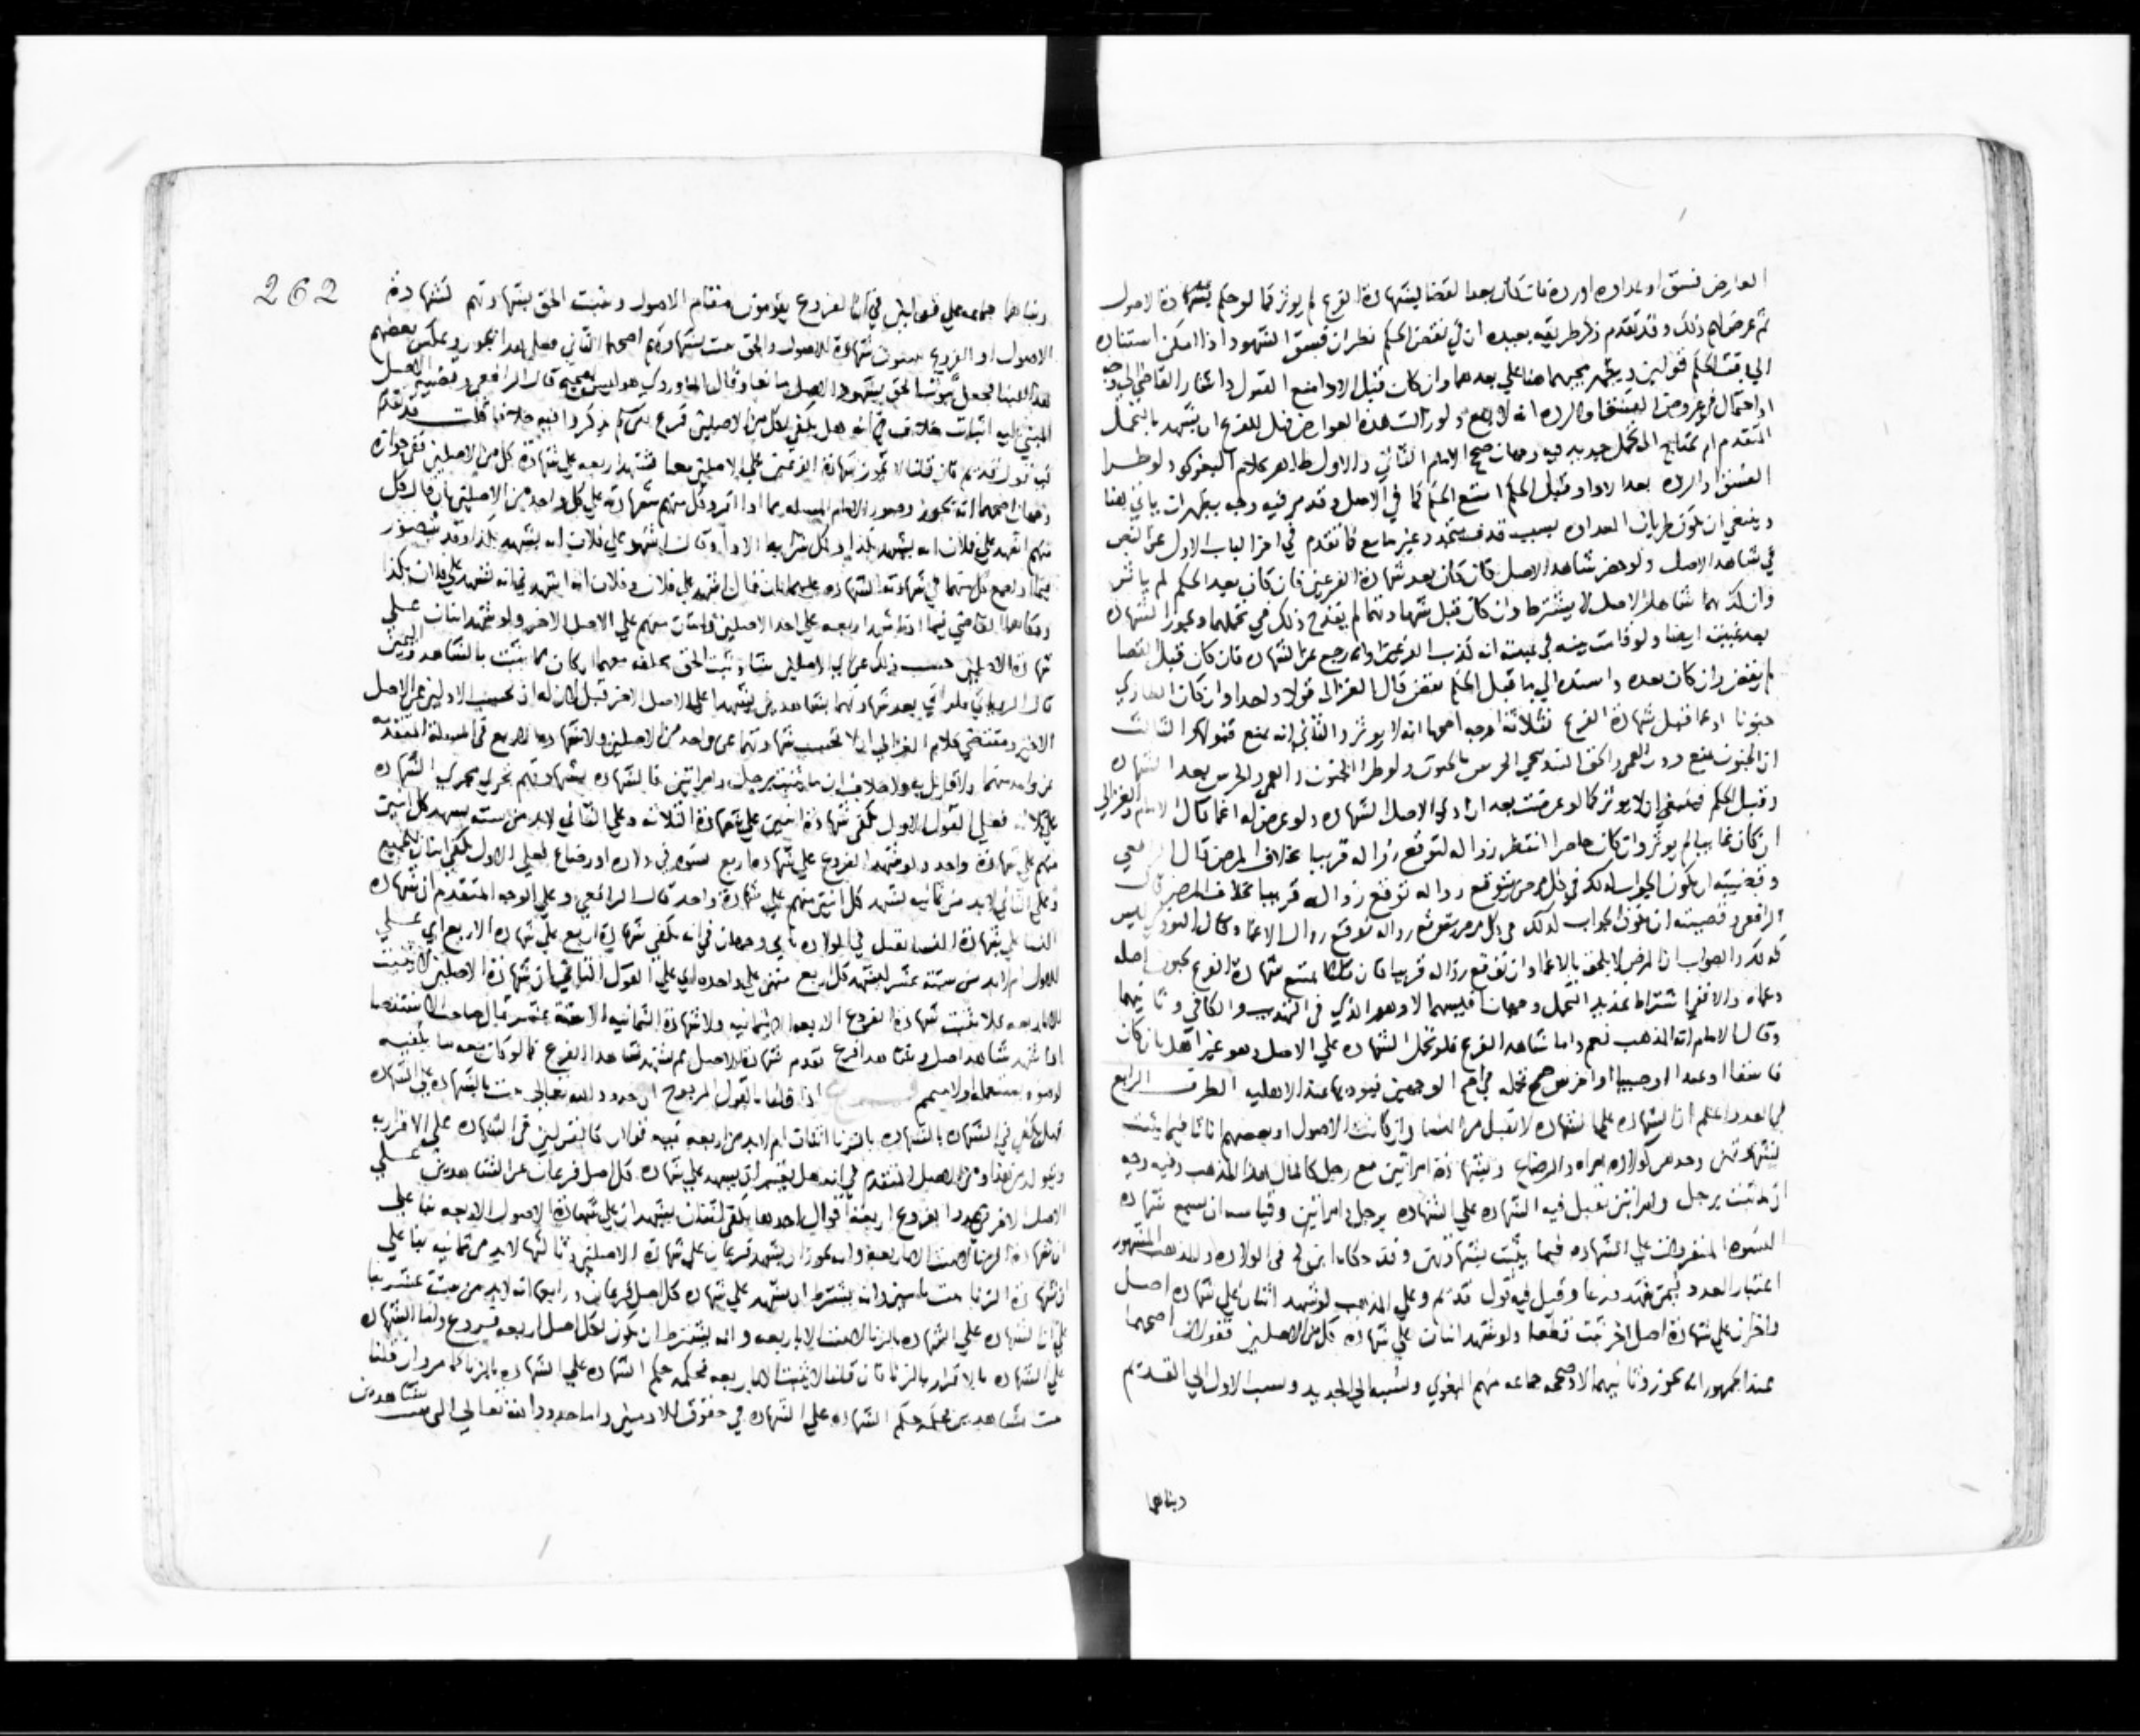 العارض فسق او عداوه او ردة فان كان بعد القضا بشهادة الفرع لم يوثر كما لو حكم بشهادة الاصول
ثم عرض لهم ذلك وقد تقدم ذكر طريقه بعيده ان في نقض الحكم نظر ان فسق الشهود اذا امكن استناده
الي وقت الحكم قولين ويتجه مجيهما هنا علي بعدها وان كان قبل الادا امنع القبول
او احتمال في عروض الفسق والرده انه لا يمنع ولو زالت هذه العوارض فهل للفرع ان يشهد بالتحمل
المتقدم ام يحتاج الي تحمل جديد فيه وجهان صحح الامام الثاني والاول ظاهر كلام البغوي ولو طرا
الفسق او الرده بعد الادا وقبل الحكم امتنع الحكم كما في الاصل وقد مر فيه وجه ياتي هنا
وينبغي ان يكون طريان العداوه بسبب قذف متجدد غير مانع كما تقدم في اخر الباب الاول
في شاهد الاصل ولو حضر شاهد الاصل فان كان بعد شهادة الفرعين فان كان بعد الحكم لم ياثر
وان كذبهما لا يشترط وان كان قبل شهادتهما لم يقدح ذلك في تحملهما ويجوز الشهاده
بعد غيبته ايضا ولو قامت بينه في غيبته انه كذب الفرعين او رجع عن الشهاده فان كان قبل القضا
لم ينفذ وان كان بعده واسنده الي ما قبل الحكم نقض قال الغزالي قولا واحدا وان كان الطاري
جنونا او عما قبل شهادة الفرع فثلاثة اوجه اصحها انه لا يوثر والثاني انه يمنع قبولها والثالث
ان الجنون يمنع دون العمي والحق البندنيجي الخرس بالموت ولو طرا الجنون والعمي والخرس بعد الشهاده
وقبل الحكم فينبغي ان لا يوثر كما لو عرضت بعد ان ادي الاصل الشهاده ولو عرض له اغما قال الامام والغزالي
ان كان غايبا لم يوثر وان كان حاضرا انتظر زواله لتوقع زواله قريبا بخلاف المرض قال الرافعي
وقضيته ان يكون الجواب كذلك في كل مرض يتوقع زواله توقع زواله قريبا بخلاف المرض قال
الرافعي وقضيته ان يكون الجواب كذلك في كل مرض يتوقع زواله توقع زوال الاغما وقال النووي ليس
كذلك والصواب ان المرض لا يلحق بالاغما وان توقع زواله قريبا فان قلنا يمتنع شهادة الفرع بجنون اصله
وعماه والا ففي اشتراط تجديد التحمل وجهان قياسهما لا وهو الذي في التهذيب والكافي وثانيهما
وقال الامام انه المذهب نعم واما شاهد الفرع فلو تحمل الشهاده علي الاصل وهو غير اهل بان كان
فاسقا او عبدا او صبيا او اخرس صح تحمله في اصح الوجهين فيوديها عند الاهليه الطرف الرابع
في العدد اعلم ان الشهاده علي الشهاده لا تقبل من النسا وان كانت الاصول او بعضهم اناثا فيما يثبت
بشهادتهن وحدهن كولادة امراه والرضاع وبشهادة امراتين مع رجل كالمال هذا المذهب وفيه وجه
ان ما يثبت برجل وامراتين تقبل فيه الشهاده علي الشهاده برجل وامراتين وقياسه ان يسمع شهادة
النسوه المنفردات علي الشهاده فيما يثبت بشهادتهن وقد حكاه ابن كج في الولاده والمذهب المشهور
اعتبار العدد وقيل فيه قول قديم وعلي المذهب لو شهد اثنان علي شهادة اصل
واخران علي شهادة اصل اخر ثبت قطعا ولو شهد اثنان علي شهادة كل من الاصلين فقولان اصحهما
عند الجمهور انه يجوز وثانيهما لا وصححه جماعه منهم البغوي ونسبه الي الجديد ونسب الاول الي القديم
وبناهما
262
وبناهما جماعه علي قولين في ان الفروع يقومون مقام الاصول ويثبت الحق بشهادتهم لشهادة
الاصول او الفروع يثبتون شهادة الاصول والحق يثبت بشهادتهم اصحهما الثاني فعلي هذا يجوز وعكس بعضهم
هذا البنا فجعل ثبوت الحق بشهود الاصل مانعا وقال الماوردي هو ليس بصحيح قال الرافعي وقضية الاصل
المبني عليه اثبات خلاف في انه هل يكفي لكل من الاصلين فرع لكن لم يذكروا فيه خلافا قلت قد تقدم
فيه قول قديم فان قلنا لا تجوز شهادة الفرعين علي الاصلين معا فشهد اربعه علي شهادة كل من الاصلين ففي جوازه
وجهان اصحهما انه يجوز وصور الامام المسله بما اذا افرد كل منهم شهادته علي كل واحد من الاصلين بان قال كل
منهم اشهد علي فلان انه يشهد بكذا وقال اشهد علي فلان انه يشهد بكذا وقد تصور
فيما اذا جمع كل منهما في شهادته الشهاده عليهما بان قال اشهد علي فلان وفلان
وحكاهما القاضي فيما اذا شهد اربعه علي احد الاصلين واثنان منهم علي الاصل الاخر ولو شهد اثنان علي
شهادة الاصلين حسب ذلك عن اي الاصلين شا ويثبت الحق بحلفه معهما ان كان مما يثبت بالشاهد واليمين
قال الروياني فلو اتي بعد شهادتهما بشاهدين يشهدا علي الاصل الاخر قبل
الاخر ومقتضي كلام الغزالي ان لا تحسب شهادتهما عن واحد من الاصلين ولا شهادة الاربع في المسلة المتقدمه
عن واحد منهما ولا قايل به ولا خلاف ان ما يثبت برجل وامراتين فالشهاده بشهادتهم تجري مجري الشهاده
علي ثلاثه فعلي القول الاول يكفي شهادة اثنين علي شهادة الثلاثه وعلي الثاني لا بد من سته يشهد كل اثنين
منهم علي شهادة واحد ولو شهد الفروع علي شهادة اربع نسوه في ولاده او رضاع فعلي الاول يكفي اثنان للجميع
وعلي الثاني لا بد من ثمانيه يشهد كل اثنين منهم علي شهادة واحد قال الرافعي وعلي الوجه المتقدم ان شهادة
النسا علي شهادة النسا تقبل في الولاده ياتي وجهان في انه يكفي شهادة اربع علي شهادة الاربع اي علي
الاول ام لا بد من ستة عشر ليشهد كل اربع منهن علي واحده اي علي القول الثاني
صاحب الاستقصا
اذا شهد شاهد اصل وشاهدا فرع تقدم شهادة الاصل ثم يشهد شاهدا الفرع كما لو كان معه ما يكفيه
لوضوء يستعمله اولا ثم يتيمم فرع اذا قلنا بالقول المرجوح ان حدود الله تعالي تثبت بالشهاده علي الشهاده
فهل يكفي في الشهاده بالشهاده بالزنا اثنان ام لا بد من اربعه فيه قولان كالقولين في الشهاده علي الاقرار به
ويتولد من هذا ومن الاصل المتقدم في انه هل يعتبر ان يشهد علي شهادة كل اصل فرعان عن الشاهدين علي
الاصل الاخر في عدد الفروع اربعة اقوال احدها يكفي اثنان يشهدان علي شهادة الاصول الاربعه بنا علي
ان شهادة الزنا وانه يجوز ان يشهد فرعان علي شهادة الاصلين وثالثها لا بد من ثمانيه بنا علي
ان شهادة الزنا تثبت باثنين وانه يشترط ان يشهد علي شهادة كل اصل فرعان ورابعها انه لا بد من ستة عشر بنا
علي ان الشهاده علي الشهاده بالزنا لا تثبت الا باربعه وانه يشترط ان يكون لكل اصل اربعه فروع واما الشهاده
علي الشهاده بالاقرار بالزنا فان قلنا لا يثبت الا باربعه فحكمه حكم الشهاده علي الشهاده بالزنا كما مر وان قلنا
يثبت بشاهدين فحكمه حكم الشهاده علي الشهاده في حقوق الادميين واما حدود الله تعالي التي تثبت بشاهدين